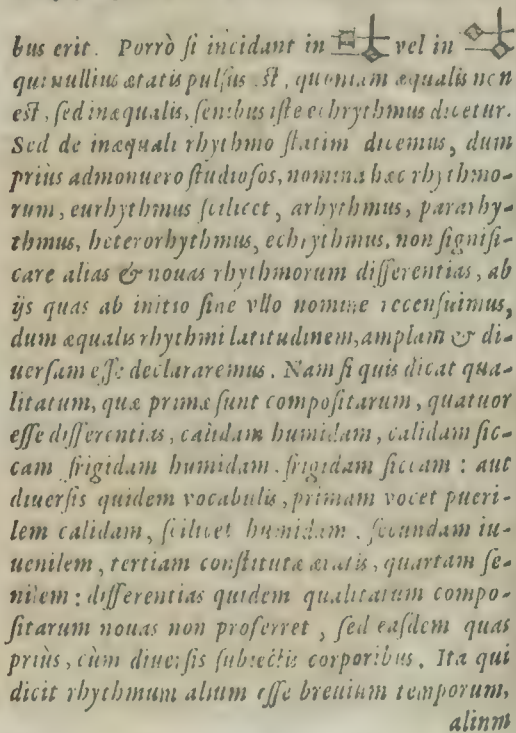 bus erit. Porrò ſi incidant in vel in
qui nullius ætatis pulſus eſt, quoniam æqualis non
eſt, ſed inæqualis, ſenibus iſte echrythmus dicetur.
Sed de inæquali rhythmo ſtatim dicemus, dum
priùs admonuero ſtudioſos, nomina hæc rhythmo-
rum, eurhythmus ſcilicet, arhythmus, pararhy-
thmus, heterorhythmus, echrythmus, non ſignifi-
care alias & nouas rhythmorum differentias, ab
ijs quas ab initio ſine vllo nomine recenſuimus,
dum æqualis rhythmi latitudinem, amplam & di-
uerſam eſſe declararemus. Nam ſi quis dicat qua-
litatum, quæ primæ ſunt compoſitarum, quatuor
eſſe differentias, calidam humidam, calidam ſic-
cam frigidam humidam, frigidam ſiccam : aut
diuerſis quidem vocabulis, primam vocet pueri-
lem calidam, ſcilicet humidam, ſecundam iu-
uenilem, tertiam conſtitutæ ætatis, quartam ſe-
nilem : differentias quidem qualitatum compo-
ſitarum nouas non proferret, ſed eaſdem quas
priùs, cùm diuerſis ſubiectis corporibus. Ita qui
dicit rhythmum alium eſſe breuium temporum,
alium